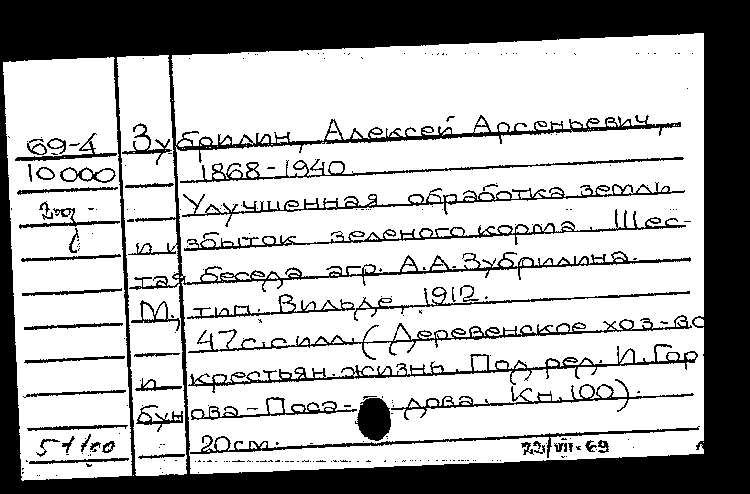 69-4 Зубрилин, Алексей Арсеньевич,
10000 1868-1940
Улучшенная обработка земль
и избыток зеленого корма. Шес-
тая беседа агр. А.А.Зубрилина.
М., тип. Вильде, 1912.
47с.с илл. (Деревенское хоз-во
и крестьян.жизнь. Под ред. И.Гор
бунова-Поса-дова. Кн.100).
51/00 20см.
22/VII-69